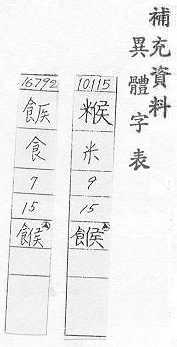 補充資料
異體字表
10115
糇
米
9
15
餱
16792
食
7
15
餱